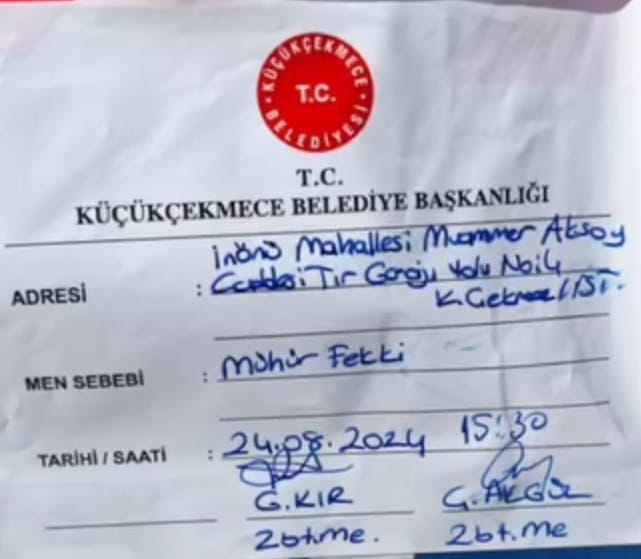 KÜÇÜKÇEKMECE
T.C.
BELEDİYESİ
T.C.
KÜÇÜKÇEKMECE BELEDİYE BAŞKANLIĞI
ADRESİ : İnönü Mahallesi Muammer Aksoy
Caddesi Tır Garajı Yolu No:4
K.Çekmece / İST.
MEN SEBEBİ : Mühür Fekki
TARİHİ / SAATİ : 24.08.2024 15:30
G.KIR G.AKGÜL
Zbt.me. Zbt.me